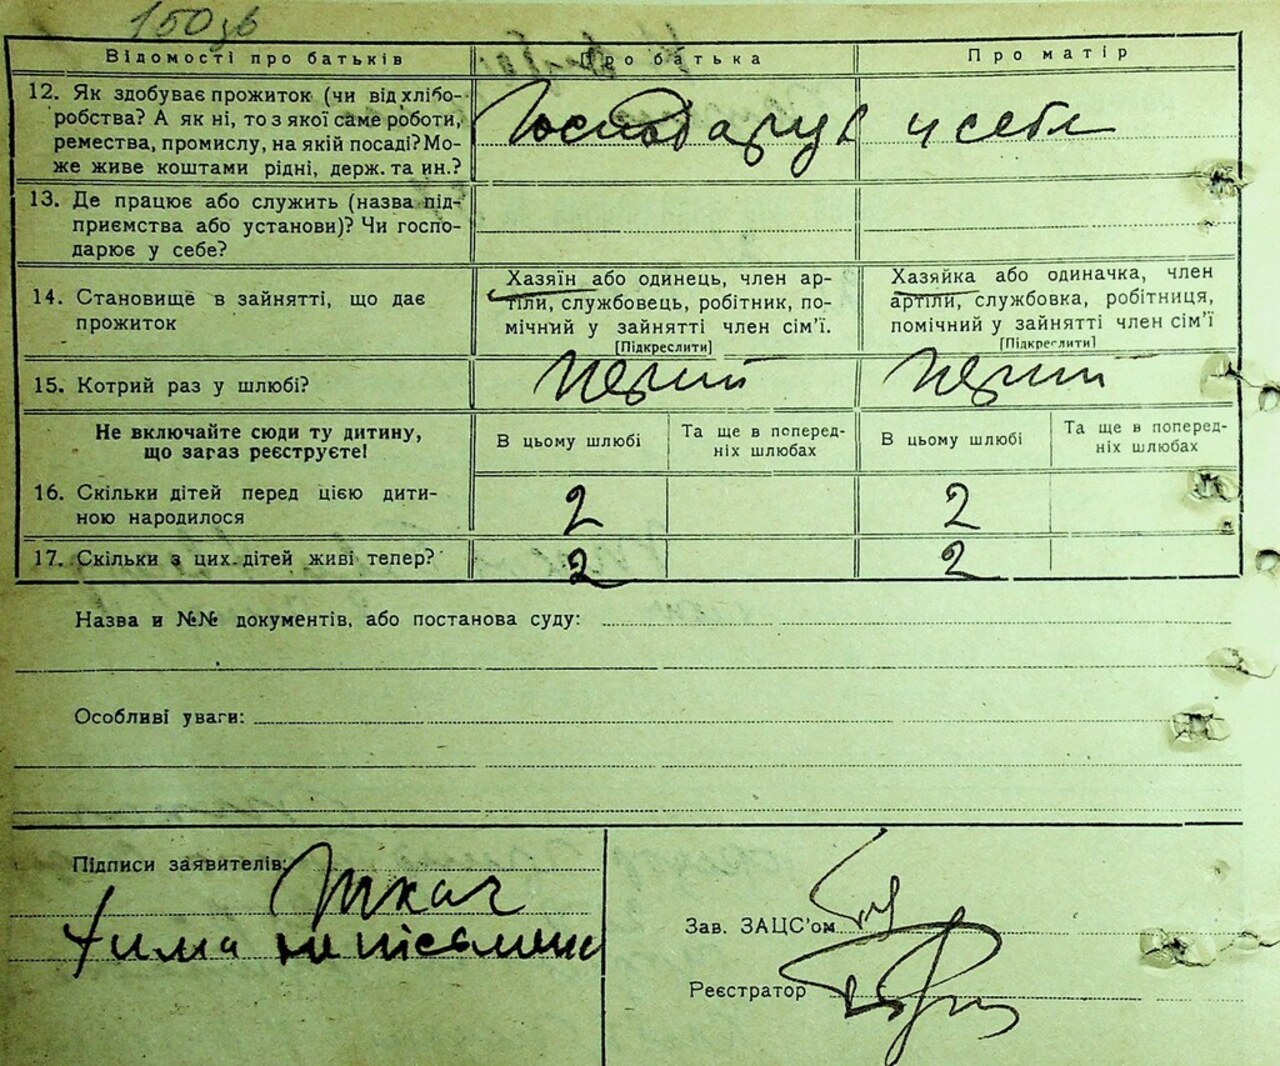 150 зв
Відомості про батьків Про батька Про матір
12. Як здобуває прожиток (чи від хлібо-
робства? А як ні, то з якої саме роботи,
ремества, промислу, на якій посаді? Мо-
же живе коштами рідні, держ. та ин.?
Господарує у себе
13. Де працює або служить (назва під-
приємства або установи)? Чи госпо-
дарює у себе?
14. Становище в зайнятті, що дає
прожиток
Хазяїн або одинець, член ар-
тіли, службовець, робітник, по-
мічний у зайнятті член сім'ї.
[Підкреслити]
Хазяйка або одиначка, член
артіли, службовка, робітниця,
помічний у зайнятті член сім'ї
[Підкреслити]
15. Котрий раз у шлюбі? перший перший
Не включайте сюди ту дитину,
що зараз реєструєте!
В цьому шлюбі
Та ще в поперед-
ніх шлюбах
В цьому шлюбі
Та ще в поперед-
ніх шлюбах
16. Скільки дітей перед цією дити-
ною народилося
2 2
17. Скільки з цих дітей живі тепер? 2 2
Назва и №№ документів, або постанова суду:
Особливі уваги:
Підписи заявителів:
Ткач
Хима неписьменна
Зав. ЗАЦС'ом
Реєстратор